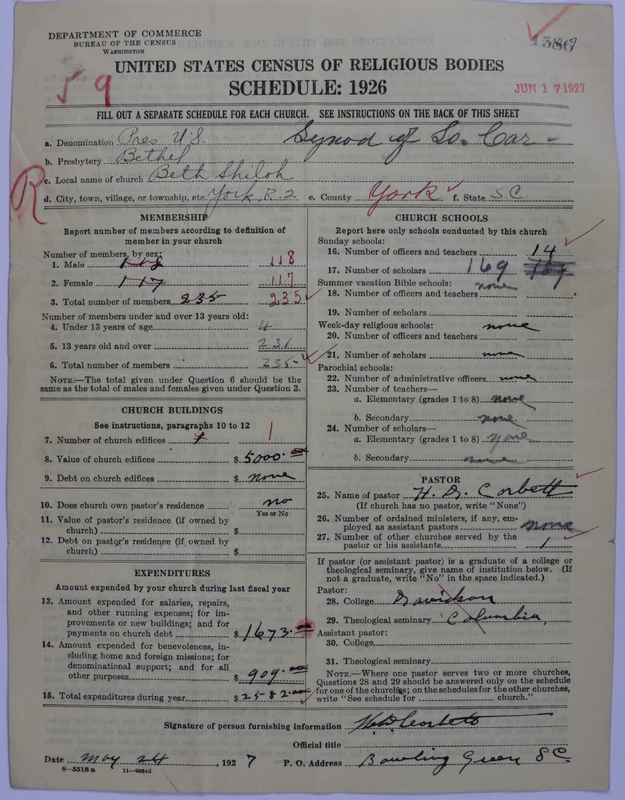 DEPARTMENT OF COMMERCE
BUREAU OF THE CENSUS
WASHINGTON
59
UNITED STATES CENSUS OF RELIGIOUS BODIES
SCHEDULE: 1926
JUN 17 1927
FILL OUT A SEPARATE SCHEDULE FOR EACH CHURCH. SEE INSTRUCTIONS ON THE BACK OF THIS SHEET
a. Denomination Pres U.S. Synod of So. Car -
b. Presbytery Bethel
c. Local name of church Beth Shiloh
R
d. City, town, village, or township, etc. York, R. 2 e. County York f. State S C
MEMBERSHIP
Report number of members according to definition of
member in your church
Number of members, by sex:
1. Male 118 118
2. Female 117 117
3. Total number of members 235 235
Number of members under and over 13 years old:
4. Under 13 years of age 4
5. 13 years old and over 231
6. Total number of members 235
NOTE.—The total given under Question 6 should be the
same as the total of males and females given under Question 3.
CHURCH BUILDINGS
See instructions, paragraphs 10 to 12
7. Number of church edifices 1 1
8. Value of church edifices $ 5000.00
9. Debt on church edifices $ none
10. Does church own pastor's residence no
Yes or No
11. Value of pastor's residence (if owned by
church) $
12. Debt on pastor's residence (if owned by
church) $
EXPENDITURES
Amount expended by your church during last fiscal year
13. Amount expended for salaries, repairs,
and other running expenses; for im-
provements or new buildings; and for
payments on church debt $ 1673.00
14. Amount expended for benevolences, in-
cluding home and foreign missions; for
denominational support; and for all
other purposes $ 909.00
15. Total expenditures during year $ 2582.00
CHURCH SCHOOLS
Report here only schools conducted by this church
Sunday schools:
16. Number of officers and teachers 14
17. Number of scholars 169
Summer vacation Bible schools:
18. Number of officers and teachers none
19. Number of scholars
Week-day religious schools: none
20. Number of officers and teachers
21. Number of scholars none
Parochial schools:
22. Number of administrative officers none
23. Number of teachers—
a. Elementary (grades 1 to 8) none
b. Secondary none
24. Number of scholars—
a. Elementary (grades 1 to 8) none
b. Secondary none
PASTOR
25. Name of pastor Corbett
(If church has no pastor, write "None")
26. Number of ordained ministers, if any, em-
ployed as assistant pastors none
27. Number of other churches served by the
pastor or his assistants 1
If pastor (or assistant pastor) is a graduate of a college or
theological seminary, give name of institution below. (If
not a graduate, write "No" in the space indicated.)
Pastor:
28. College Davidson
29. Theological seminary Columbia,
Assistant pastor:
30. College
31. Theological seminary
NOTE.—Where one pastor serves two or more churches,
Questions 28 and 29 should be answered only on the schedule
for one of the churches; on the schedules for the other churches,
write "See schedule for church."
Signature of person furnishing information Corbett
Official title
Date May 24, 1927 P. O. Address Bowling Green S C
8—5518a 11—9864d